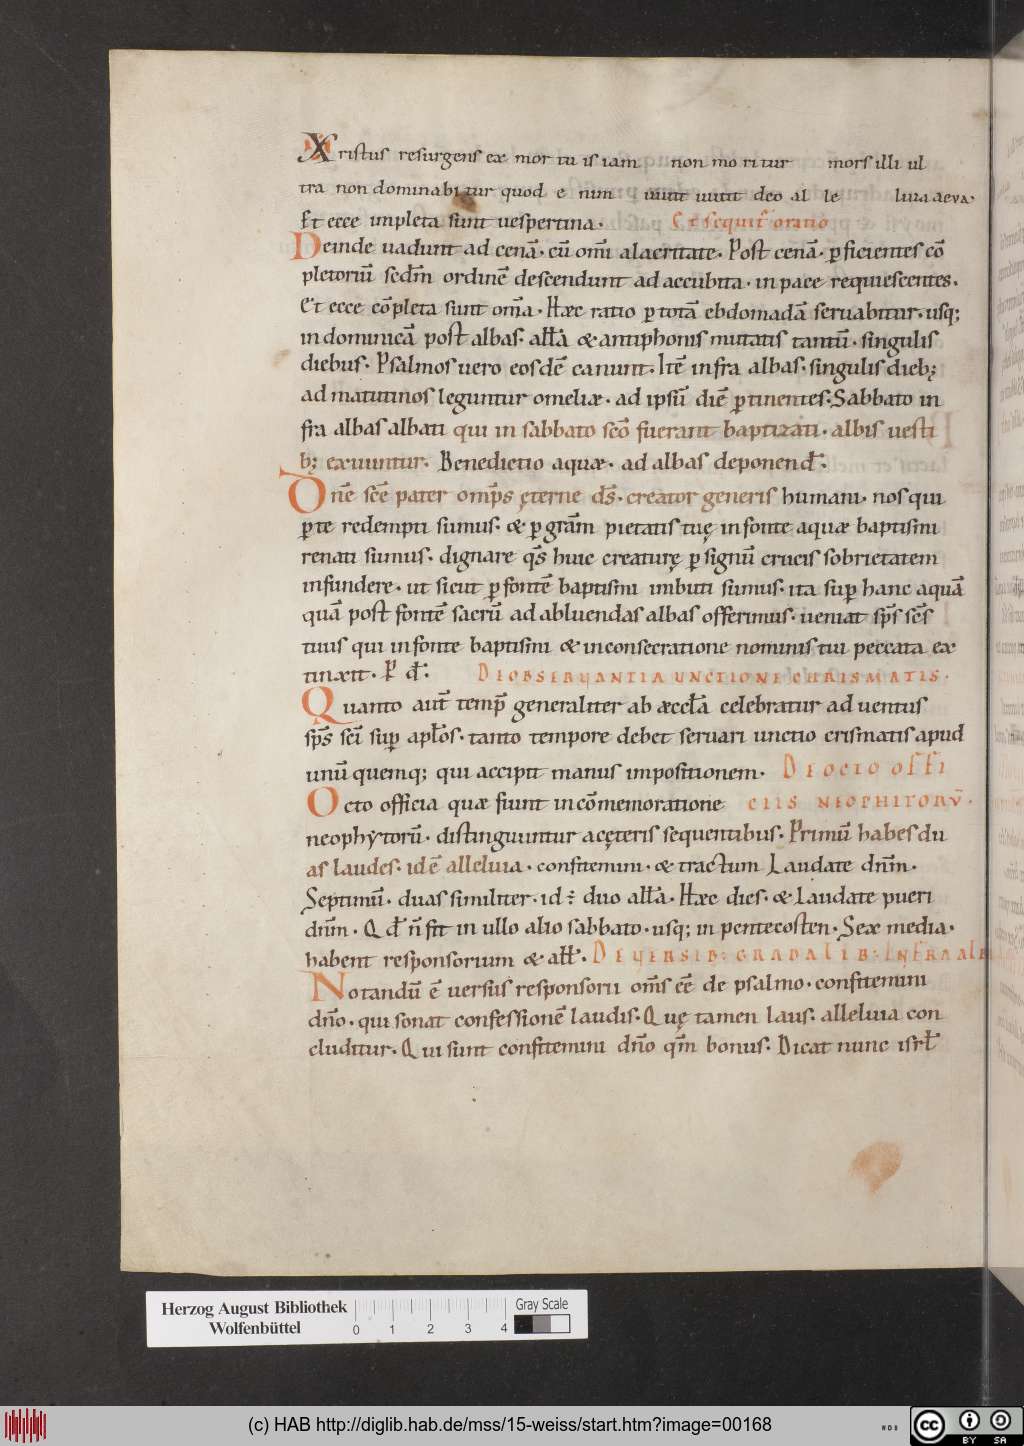 Xristus resurgens ex mor tu is iam non mo ri tur mors illi ul
tra non dominabi tur quod e nim uiuit uiuit deo al le luia aeva.
Et ecce impleta sunt uespertina. Et sequit̃ oratio
Deinde uadunt ad cenã. cũ om̃i alacritate. Post cenã. ꝑficientes cõ
pletoriũ scdm̃ ordinẽ descendunt ad accubita. in pace requiescentes.
Et ecce cõpleta sunt om̃a. Hæc ratio ꝑ totã ebdomadã seruabitur. usq;
in dominicã post albas. all̃a & antiphonis mutatis tantũ. singulis
diebus. Psalmos uero eosdẽ canunt. Itẽ infra albas. singulis dieb;
ad matutinos leguntur omeliæ. ad ipsũ diẽ ꝑtinentes. Sabbato in
fra albas albati qui in sabbato scõ fuerant baptizati. albis uesti
b; exuuntur. Benedictio aquæ. ad albas deponend̃.
Dñe scẽ pater omp̃s ęterne ds̃. creator generis humani. nos qui
ꝑ te redempti sumus. & ꝑ gram̃ pietatis tuę in fonte aquæ baptismi
renati sumus. dignare qs̃ huic creaturę ꝑ signũ crucis sobrietatem
infundere. ut sicut ꝑ fontẽ baptismi imbuti sumus. ita suꝑ hanc aquã
quã post fontẽ sacrũ ad abluendas albas offerimus. ueniat sps̃ scs̃
tuus qui in fonte baptismi & in consecratione nominis tui peccata ex
tinxit. P d̃.
DE OBSERVANTIA UNCTIONE CHRISMATIS.
Quanto aut̃ temp̃ generaliter ab æccl̃a celebratur aduentus
sps̃ sci̇̃ suꝑ apl̃os. tanto tempore debet seruari unctio crismatis apud
unũquemq; qui accipit manus impositionem. DE OCTO OFFI
Octo officia quæ fiunt in cõmemoratione CIIS NEOPHITORV̄.
neophẏtorũ. distinguuntur acęteris sequentibus. Primũ habes du
as laudes. id ẽ alleluia. confitemini. & tractum Laudate dñm.
Septimũ. duas similiter. id ÷ duo all̃a. Hæc dies. & Laudate pueri
dñm. Qd̃ ñ fit in ullo alio sabbato. usq; in pentecosten. Sex media.
habent responsorium & all̃. DE VERSIB: GRADALIB: INFRA ALB
Notandũ ẽ uersus responsorii oms̃ eẽ de psalmo. confitemini
dño. qui sonat confessionẽ laudis. Quę tamen laus. alleluia con
cluditur. Qui sunt confitemini dño qm̃ bonus. Dicat nunc isrl̃
Herzog August Bibliothek
Wolfenbüttel
0 1 2 3 4
Gray Scale
(c) HAB http://diglib.hab.de/mss/15-weiss/start.htm?image=00168
cc BY SA